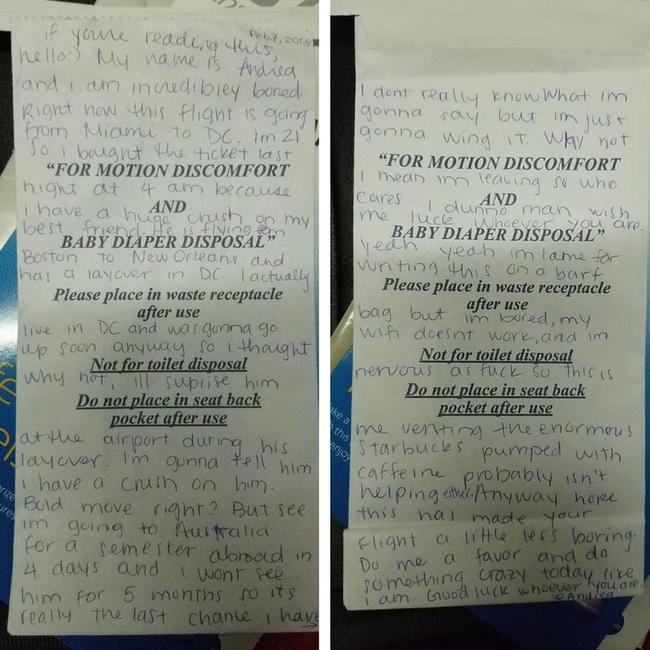 Feb 7, 2015
if you're reading this,
hello:) My name is Andrea
and i am incredibley bored.
Right now this flight is going
from Miami to DC. Im 21
so i bought the ticket last
"FOR MOTION DISCOMFORT
night at 4 am because
AND
i have a huge crush on my
best friend. He is flying from
BABY DIAPER DISPOSAL"
Boston to New Orleans and
has a layover in DC. I actually
Please place in waste receptacle
after use
live in DC and was gonna go
up soon anyway so i thought
Not for toilet disposal
why not, ill suprise him
Do not place in seat back
pocket after use
at the airport during his
layover. I'm gonna tell him
i have a crush on him.
Bold move right? But see
im going to Australia
for a semester abroad in
4 days and i wont see
him for 5 months so its
really the last chance i have
I dont really know what im
gonna say but im just
gonna wing it. Why not
"FOR MOTION DISCOMFORT
I mean im leaving so who
cares. I dunno man, wish
AND
me luck whoever you are.
BABY DIAPER DISPOSAL"
yeah yeah im lame for
writing this on a barf
Please place in waste receptacle
after use
bag but im bored, my
wifi doesnt work, and im
Not for toilet disposal
nervous as fuck so this is
Do not place in seat back
pocket after use
me venting. the enormous
Starbucks pumped with
caffeine probably isn't
helping either. Anyway hope
this has made your
flight a little less boring.
Do me a favor and do
something crazy today like
i am. Good luck whoever you are.
Andrea